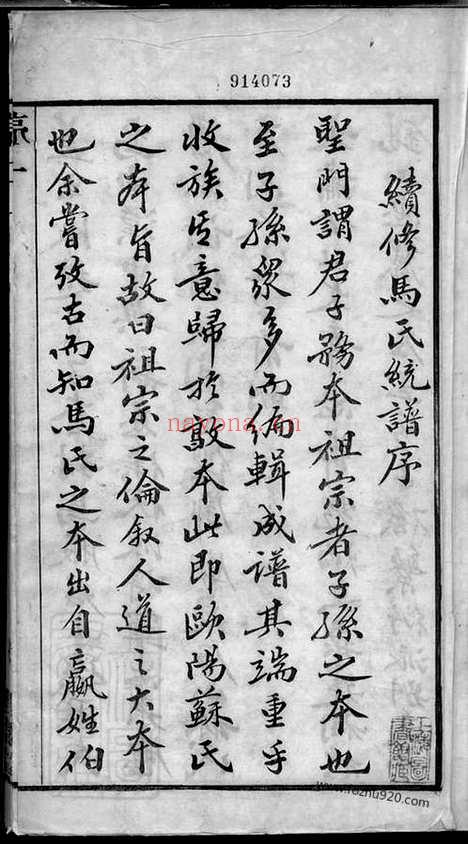 914073
續修馬氏統譜序
聖門謂君子務本祖宗者子孫之本也
至子孫衆多而編輯成譜其端重乎
收族其意歸於敦本此即歐陽蘇氏
之本旨故曰祖宗之倫叙人道之大本
也余嘗攷古而知馬氏之本出自嬴姓伯
nayona.cn
www.fozhu920.com